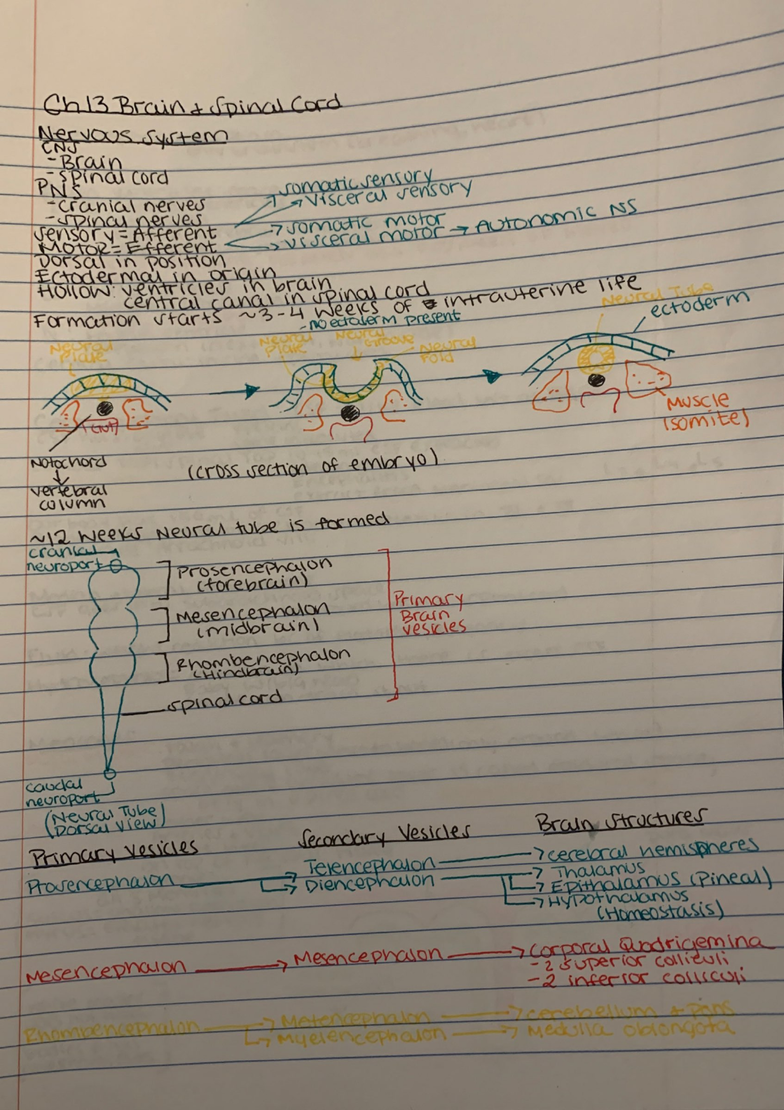 Ch 13 Brain + Spinal Cord
Nervous System
CNS
-Brain
-Spinal cord
PNS
-Cranial nerves
-Spinal nerves
Sensory = Afferent → Somatic sensory
→ Visceral sensory
Motor = Efferent → Somatic motor
→ Visceral motor → Autonomic NS
Dorsal in position
Ectodermal in origin
Hollow: ventricles in brain
central canal in spinal cord
Formation starts ~3-4 weeks of intrauterine life
-no ectoderm present
Neural Plate
Neural Plate
Neural Groove
Neural Fold
Neural Tube
ectoderm
(Gut)
Muscle
(somite)
Notochord
↓
vertebral
column
(cross section of embryo)
~12 weeks Neural tube is formed
cranial
neuroport
Prosencephalon
(forebrain)
Mesencephalon
(midbrain)
Rhombencephalon
(Hindbrain)
Primary
Brain
vesicles
Spinal cord
caudal
neuroport
(Neural Tube
Dorsal view)
Primary Vesicles Secondary Vesicles Brain Structures
Prosencephalon → Telencephalon → cerebral hemispheres
→ Diencephalon → Thalamus
→ Epithalamus (Pineal)
→ Hypothalamus
(Homeostasis)
Mesencephalon → Mesencephalon → Corporal Quadrigemina
-2 superior colliculi
-2 inferior collisculi
Rhombencephalon → Metencephalon → Cerebellum + Pons
→ Myelencephalon → Medulla oblongota